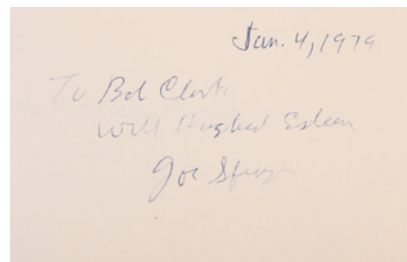 Jan. 4, 1979
To Bob Clark
With Highest Esteem
Joe